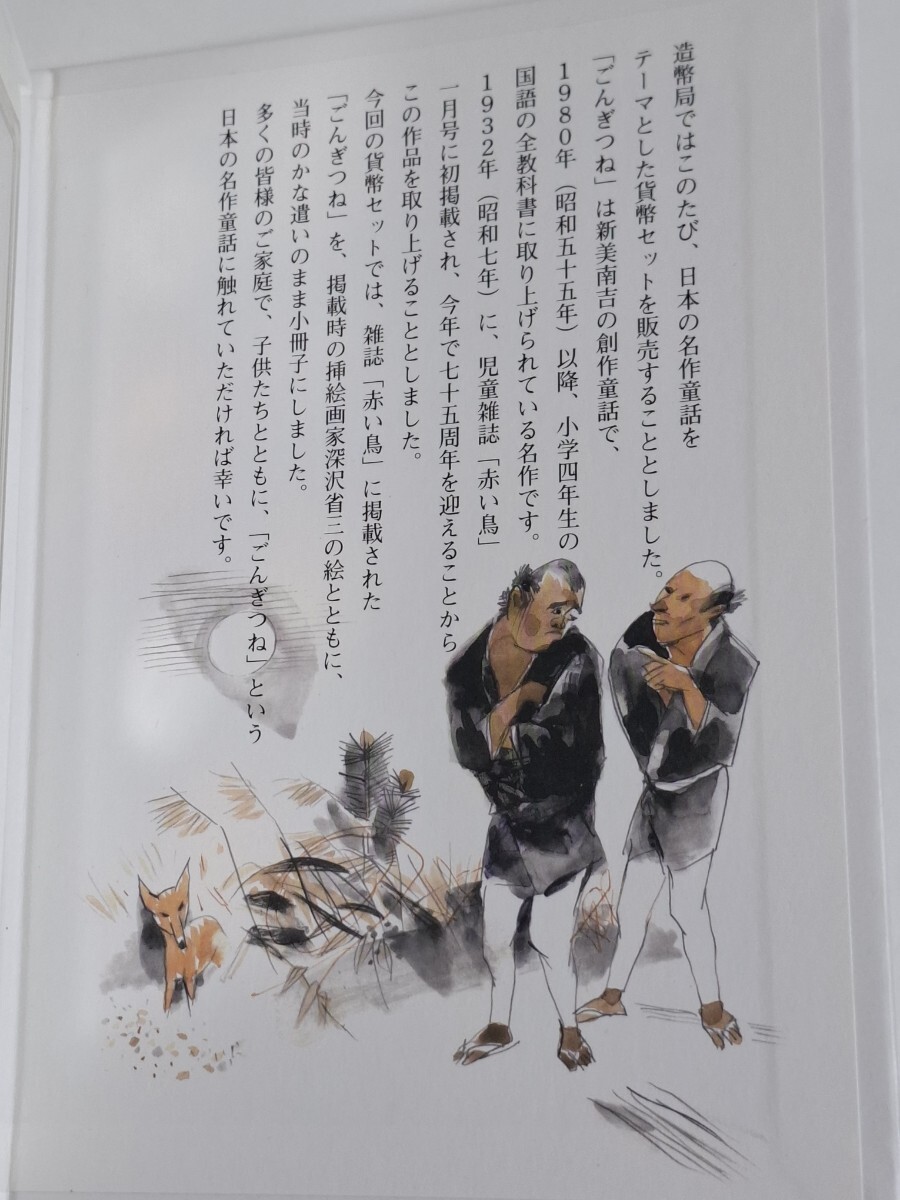 造幣局ではこのたび、日本の名作童話を
テーマとした貨幣セットを販売することとしました。
「ごんぎつね」は新美南吉の創作童話で、
1980年（昭和五十五年）以降、小学四年生の
国語の全教科書に取り上げられている名作です。
1932年（昭和七年）に、児童雑誌「赤い鳥」
一月号に初掲載され、今年で七十五周年を迎えることから
この作品を取り上げることとしました。
今回の貨幣セットでは、雑誌「赤い鳥」に掲載された
「ごんぎつね」を、掲載時の挿絵画家深沢省三の絵とともに、
当時のかな遣いのまま小冊子にしました。
多くの皆様のご家庭で、子供たちとともに、「ごんぎつね」という
日本の名作童話に触れていただければ幸いです。